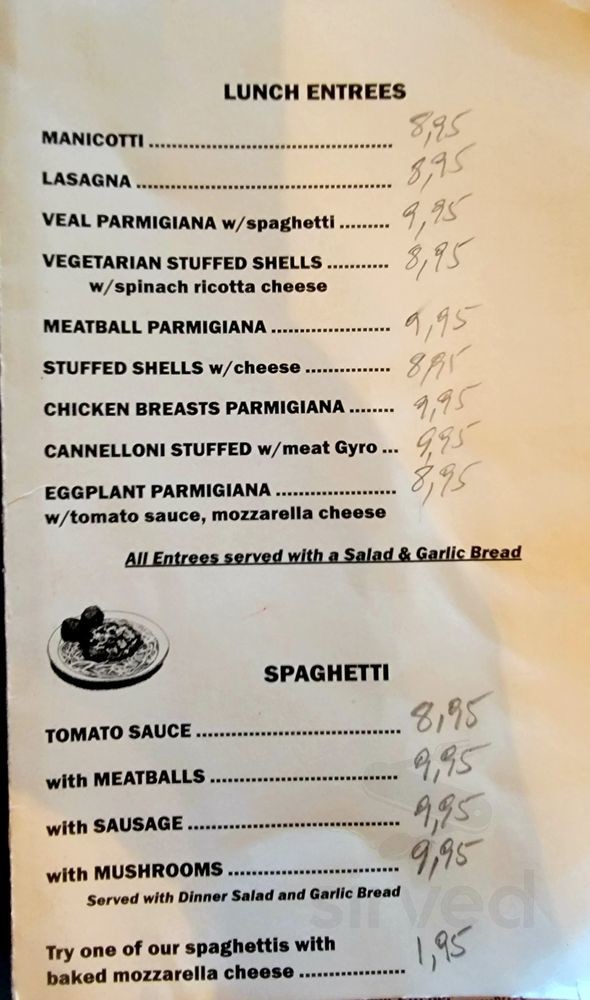 LUNCH ENTREES
MANICOTTI ........................................ 8,95
LASAGNA .......................................... 8,95
VEAL PARMIGIANA w/spaghetti ......... 9,95
VEGETARIAN STUFFED SHELLS ........... 8,95
w/spinach ricotta cheese
MEATBALL PARMIGIANA ..................... 9,95
STUFFED SHELLS w/cheese ............... 8,95
CHICKEN BREASTS PARMIGIANA ........ 9,95
CANNELLONI STUFFED w/meat Gyro ... 9,95
EGGPLANT PARMIGIANA ..................... 8,95
w/tomato sauce, mozzarella cheese
All Entrees served with a Salad & Garlic Bread
SPAGHETTI
TOMATO SAUCE ................................... 8,95
with MEATBALLS ................................ 9,95
with SAUSAGE .................................... 9,95
with MUSHROOMS ............................. 9,95
Served with Dinner Salad and Garlic Bread
sirved
Try one of our spaghettis with
baked mozzarella cheese .................. 1,95